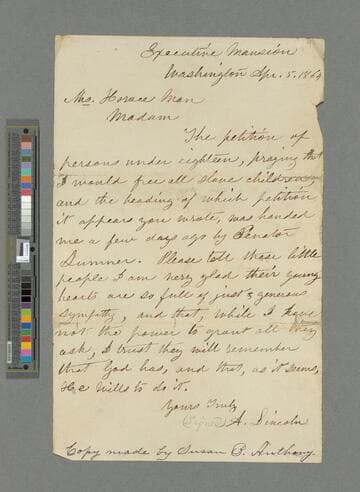 Executive Mansion
Washington Apr. 5. 1864
Mrs. Horace Man
Madam
The petition of
persons under eighteen, praying that
I would free all slave children,
and the heading of which petition
it appears you wrote, was handed
me a few days ago by Senator
Sumner. Please tell these little
people I am very glad their young
hearts are so full of just & generous
sympathy, and that, while I have
not the power to grant all they
ask, I trust they will remember
that God has, and that, as it seems,
He wills to do it.
Yours truly
(Signed) A. Lincoln
Copy made by Susan B. Anthony.